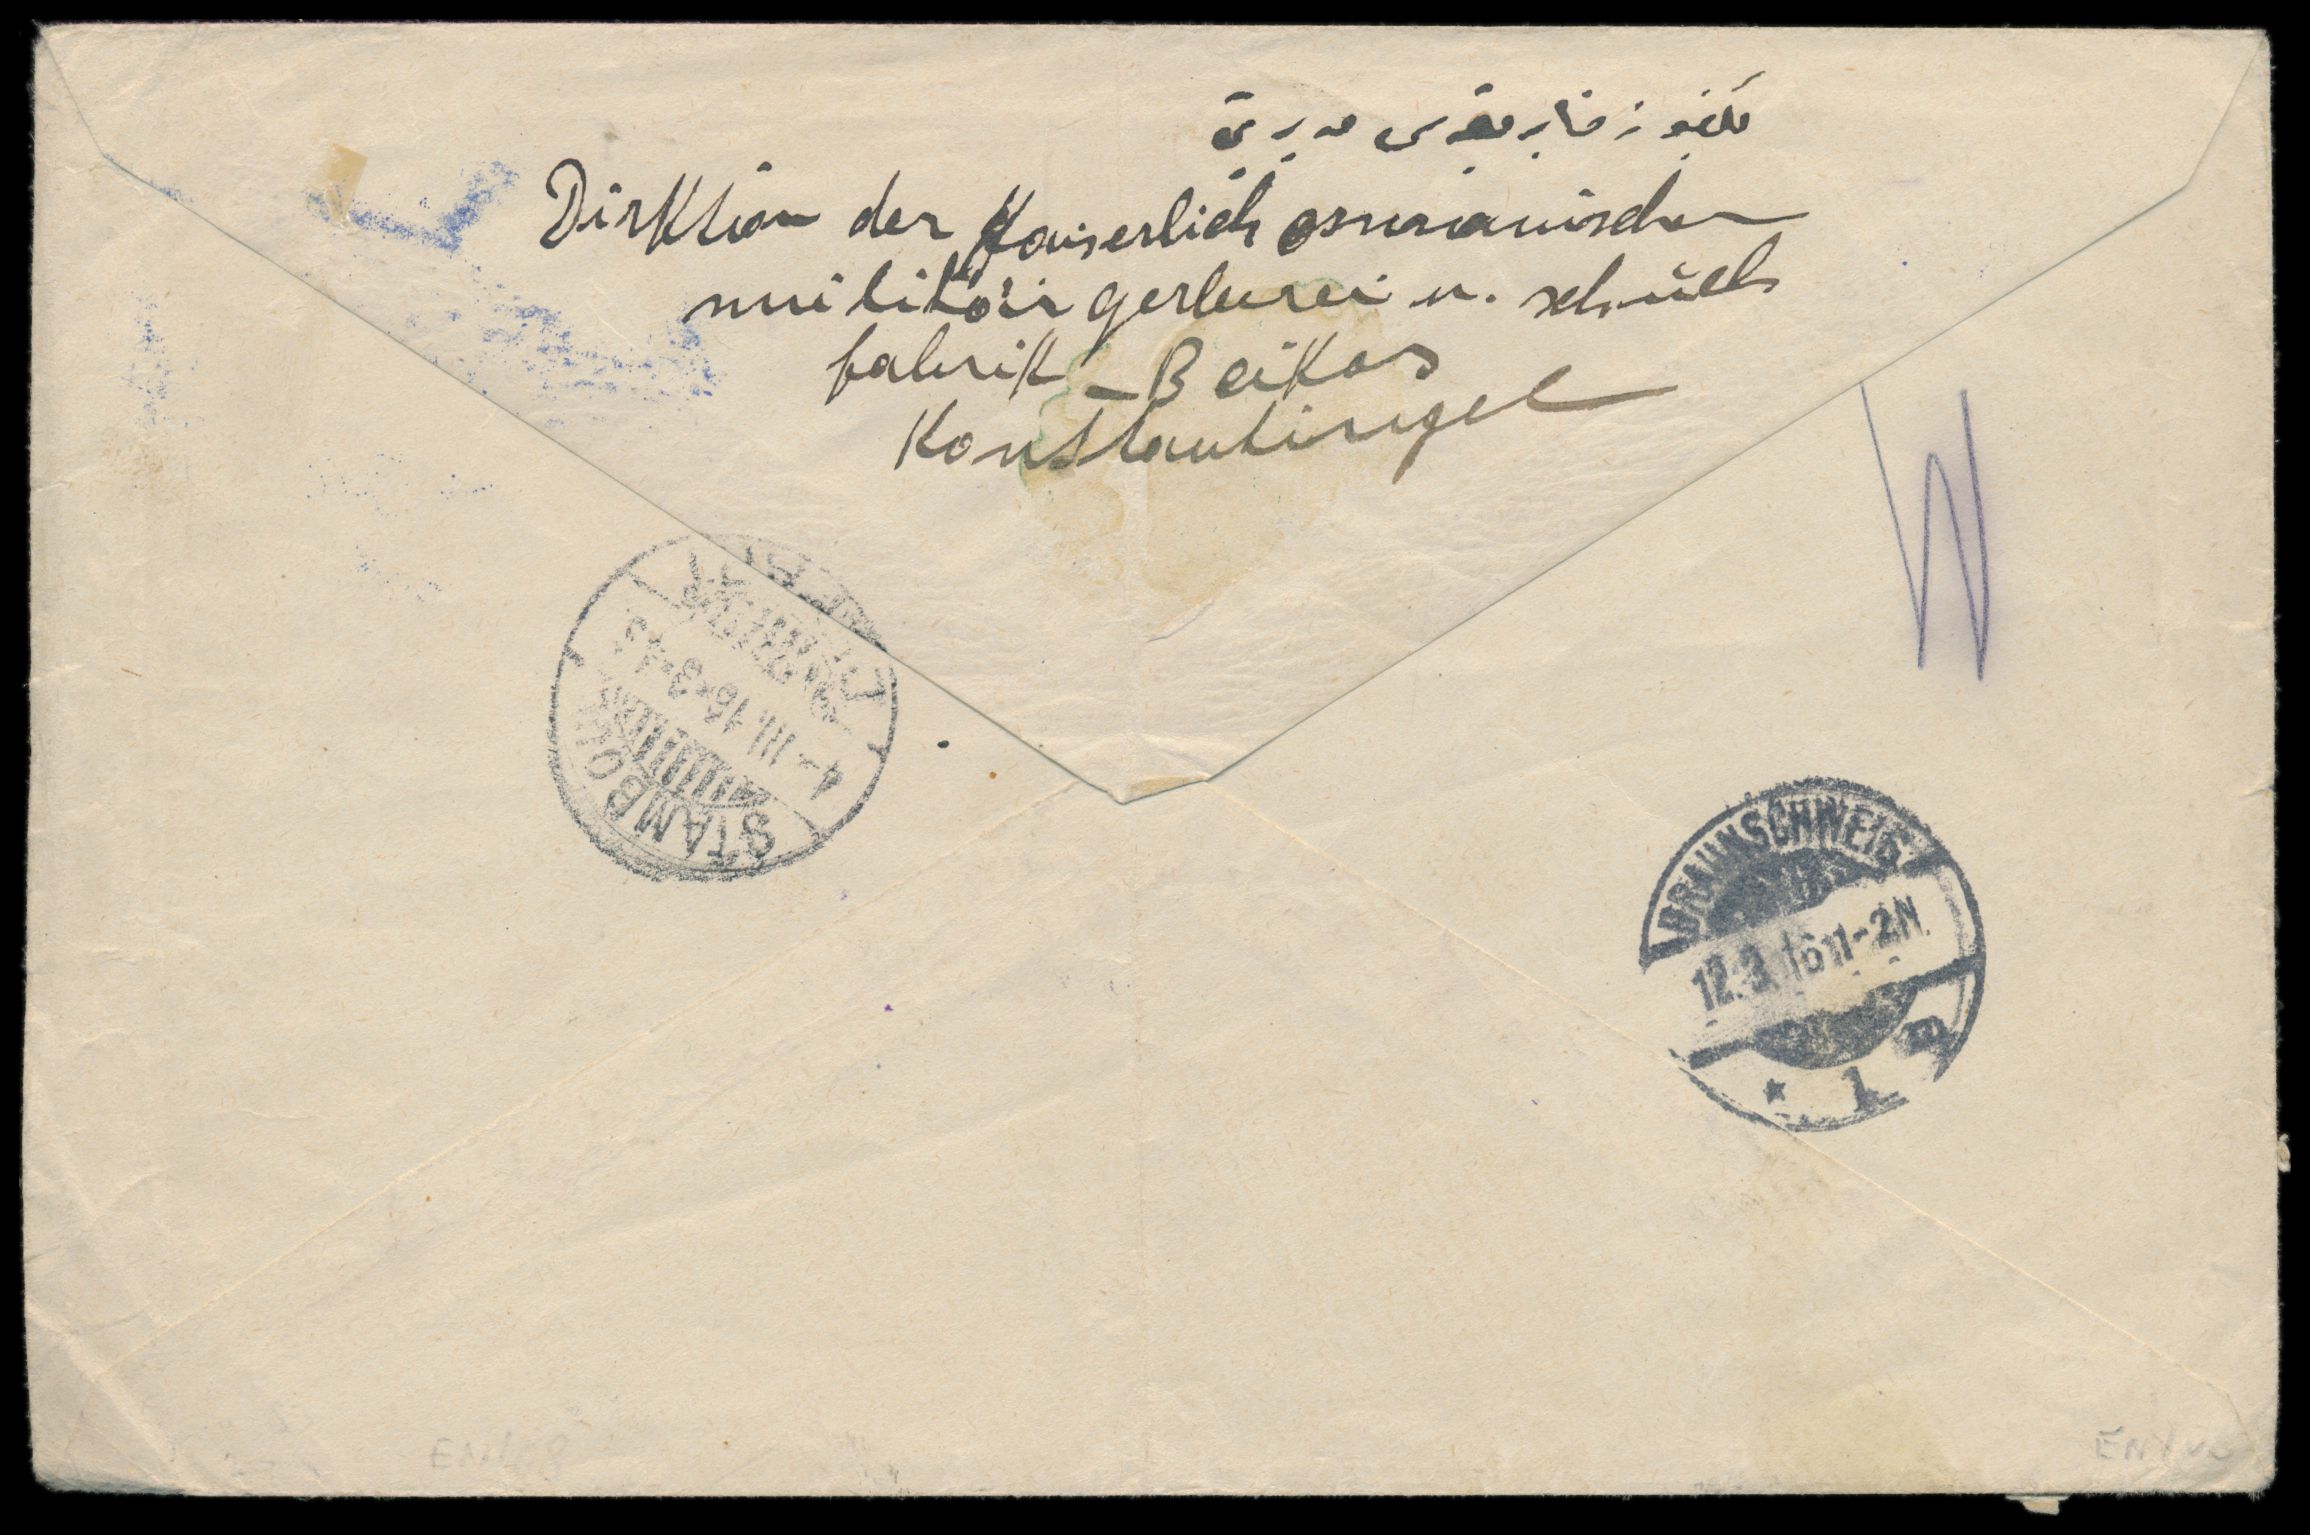 بكقوز فابريقه سى مديريتى
Dirktion der Kaiserlich osmanischen
militär gerberei u. schuch
fabrik - Beikos
Konstantinopel
STAMBOUL
4-III.16-3-15
BRAUNSCHWEIG
12.3.16 11-2N
* 1